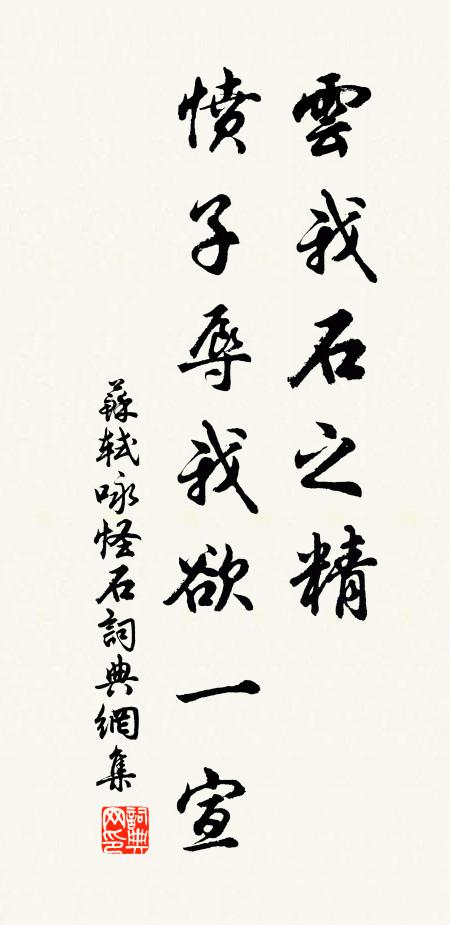 雲我石之精
憤子辱我欲一宣
蘇軾咏怪石詞典網集
詞典網印